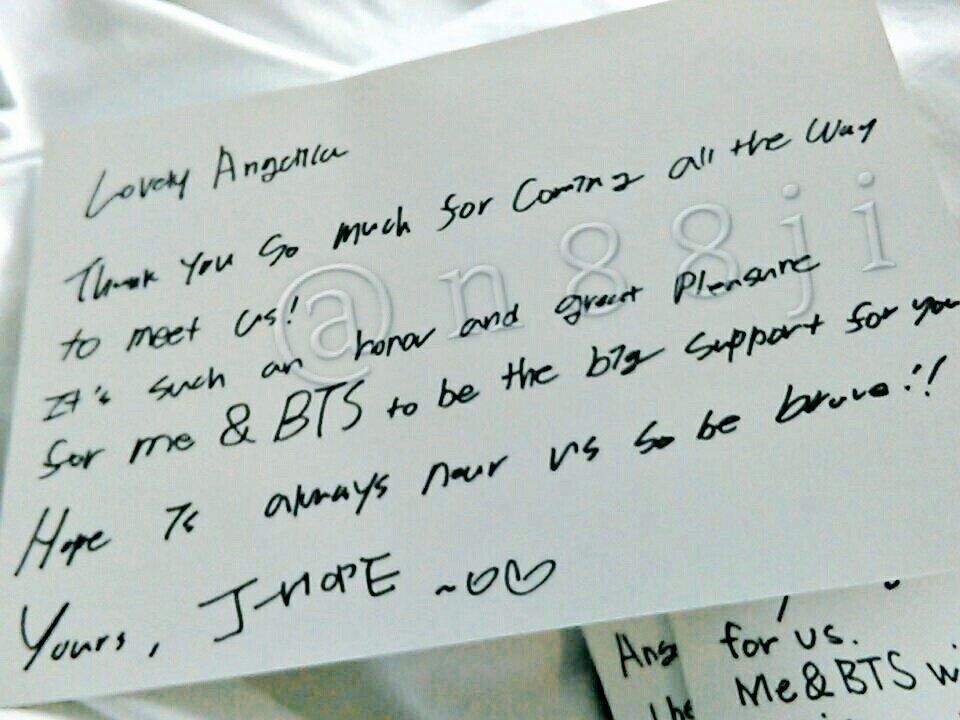 Lovely Angelica
Thank you so much for coming all the way
to meet us!
It's such an honor and great pleasure
for me & BTS to be the big support for you
Hope is always near us so be brave!!
Yours, J-HOPE ~♡♡
@n88ji
Ang
the
for us.
Me&BTS wi